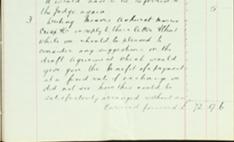 the judge again
3 Writing Messrs Amhurst
Coy & Co in reply to their letter that
while we should be pleased to
consider any suggestion on the
draft Agreement which would
give you the benefit of payment
at a fixed rate of exchange we
did not see how this could be
satisfactorily arranged without an
Carried forward £ 72 17 6